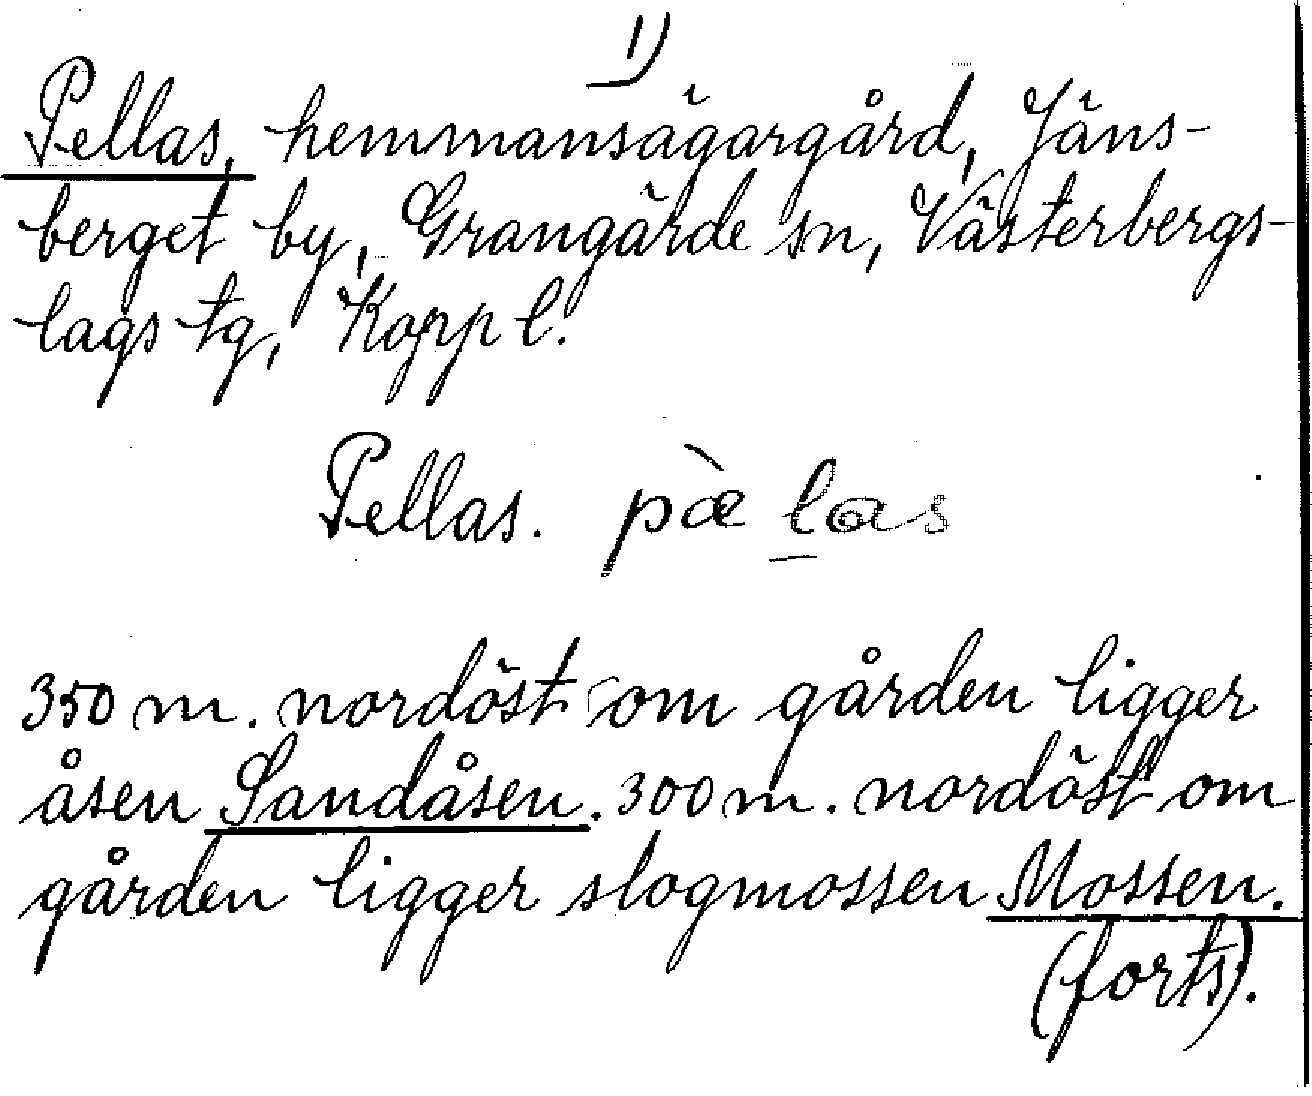 1)
Pellas, hemmansägargård, Jäns-
berget by, Grangärde sn, Västerbergs-
lags tg, Kopp l.
Pellas. pæ̀ las
350 m. nordöst om gården ligger
åsen Sandåsen. 300 m. nordöst om
gården ligger slogmossen Mossen.
(forts).